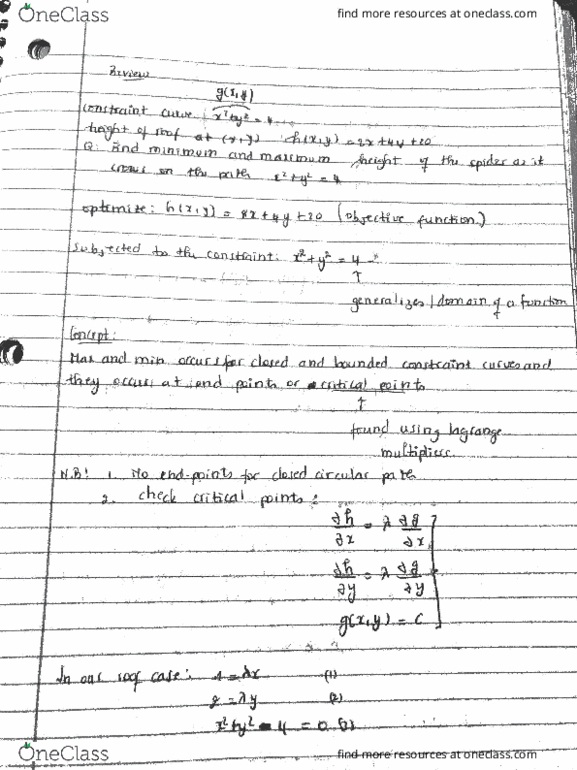 OneClass
find more resources at oneclass.com
Review
g(x,y)
constraint curve x²+y² = 4
height of roof at (x,y) h(x,y) = 2x+4y+20
Q: Find minimum and maximum height of the spider as it
craws on the path x²+y² = 4
optimize: h(x,y) = 2x+4y+20 (objective function)
Subjected to the constraint: x²+y² = 4
↑
generalizes domain of a function
Concept:
Max and min occurs for closed and bounded constraint curves and
they occurs at end points or critical points
↑
found using lagrange
multipliers
N.B! 1. No end-points for closed circular path
2. check critical points:
∂h/∂x = λ ∂g/∂x
∂h/∂y = λ ∂g/∂y
g(x,y) = c
In our roof case: 1 = λx (1)
2 = λy (2)
x²+y² - 4 = 0 (3)
OneClass
find more resources at oneclass.com